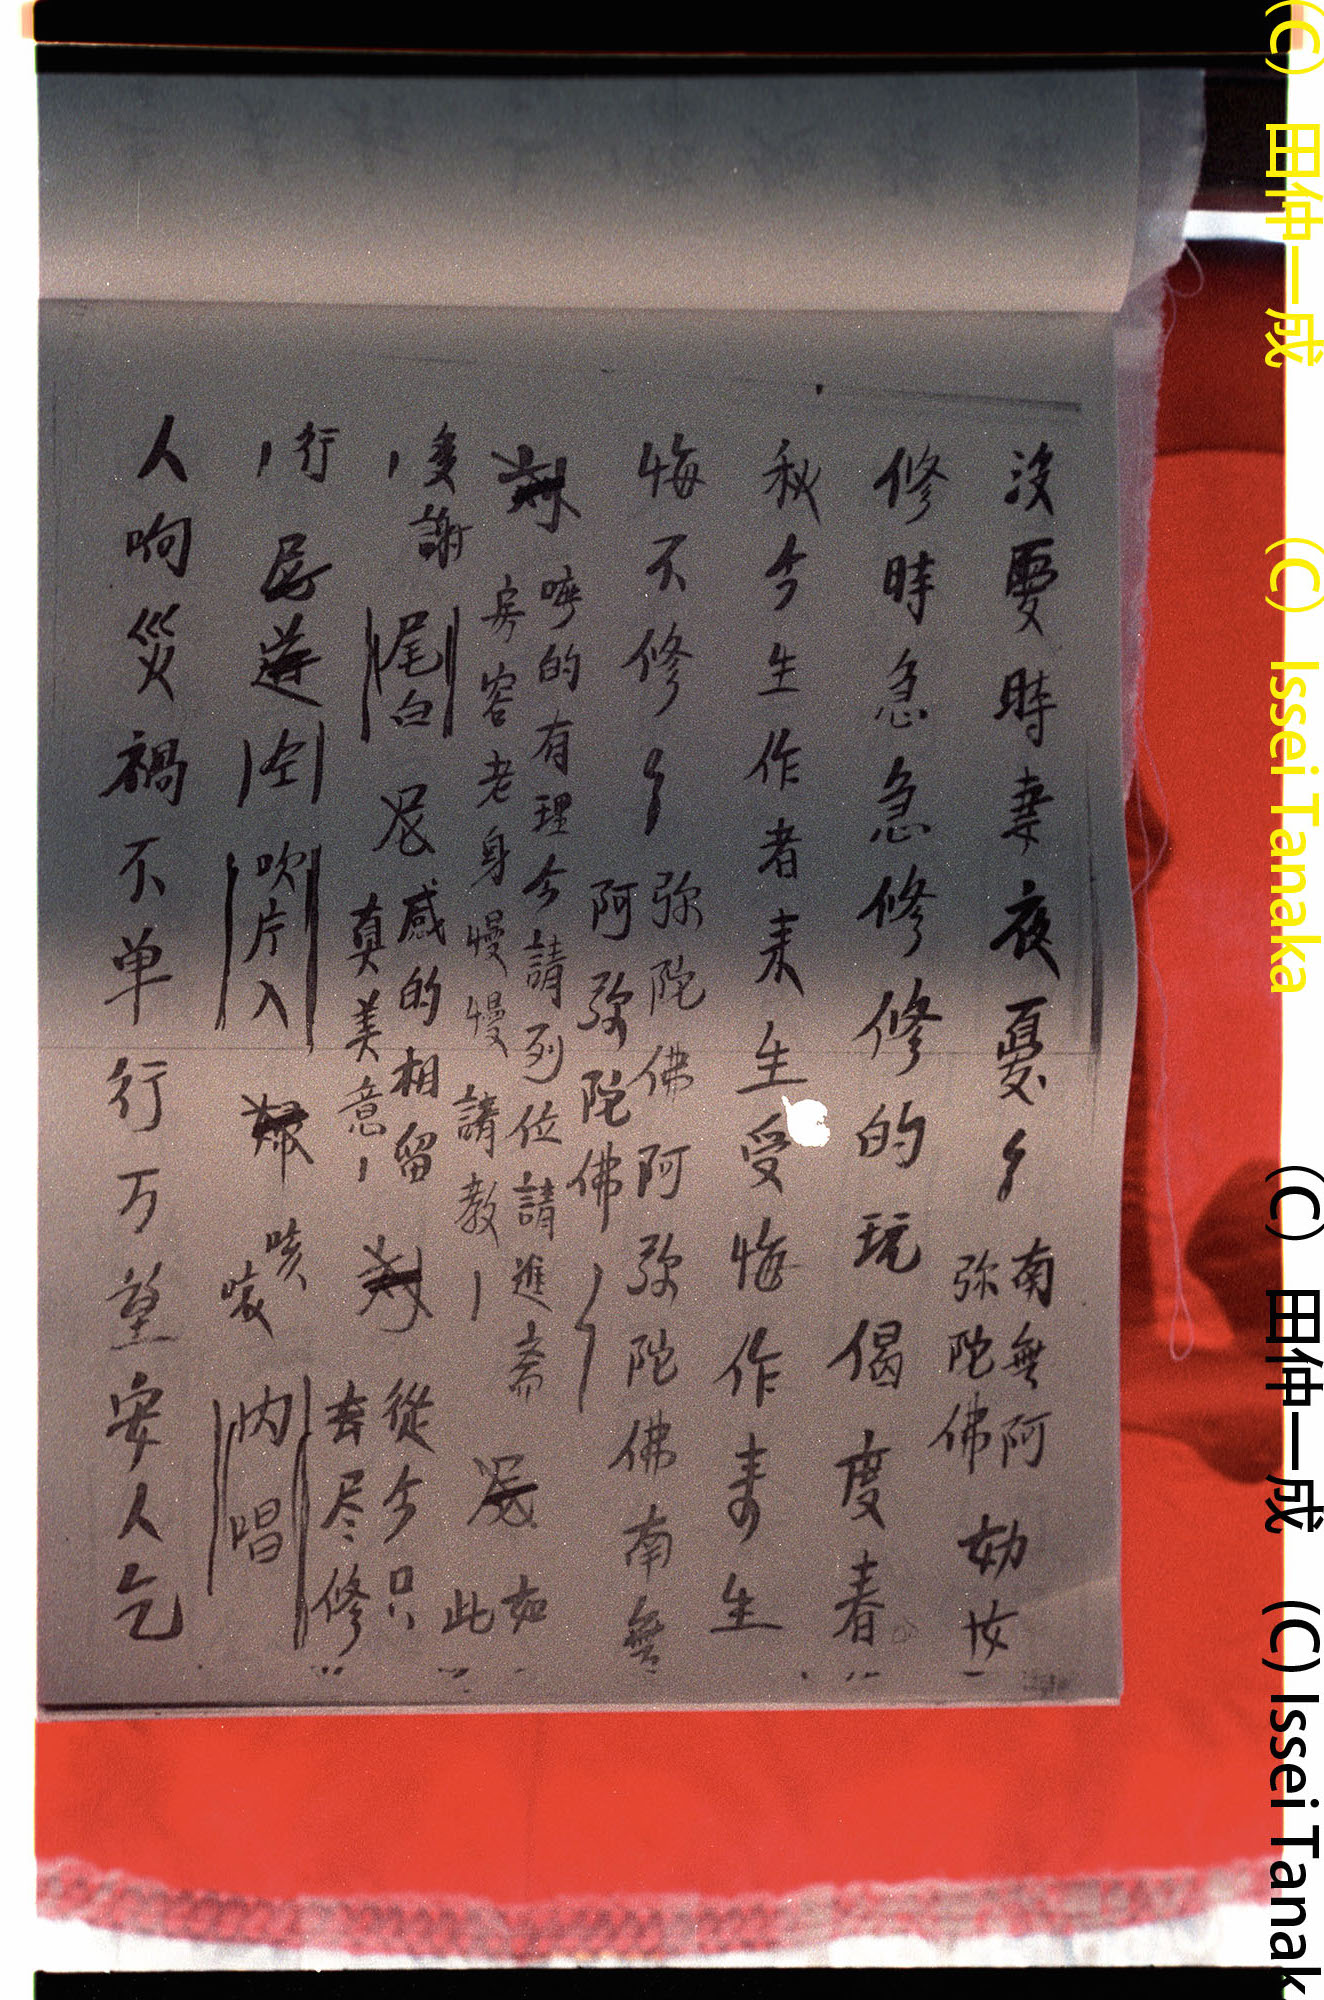 没要時妻夜憂〻南無阿
弥陀佛 幼女
修時急急修修的玩偈度春
秋今生作者来生受悔作来生
悔不修〻弥陀佛阿弥陀佛南無
阿弥陀佛
的有理今請列位請進斋
房容老身慢慢請教 如此
多謝 尾白 尼感的相留
真美意 從今只
去尽修
行 尼 空 吹片入 咳
咳 内唱
人响災禍不单行万望安人乞
(C) 田仲一成 (C) Issei Tanaka (C) 田仲一成 (C) Issei Tanak